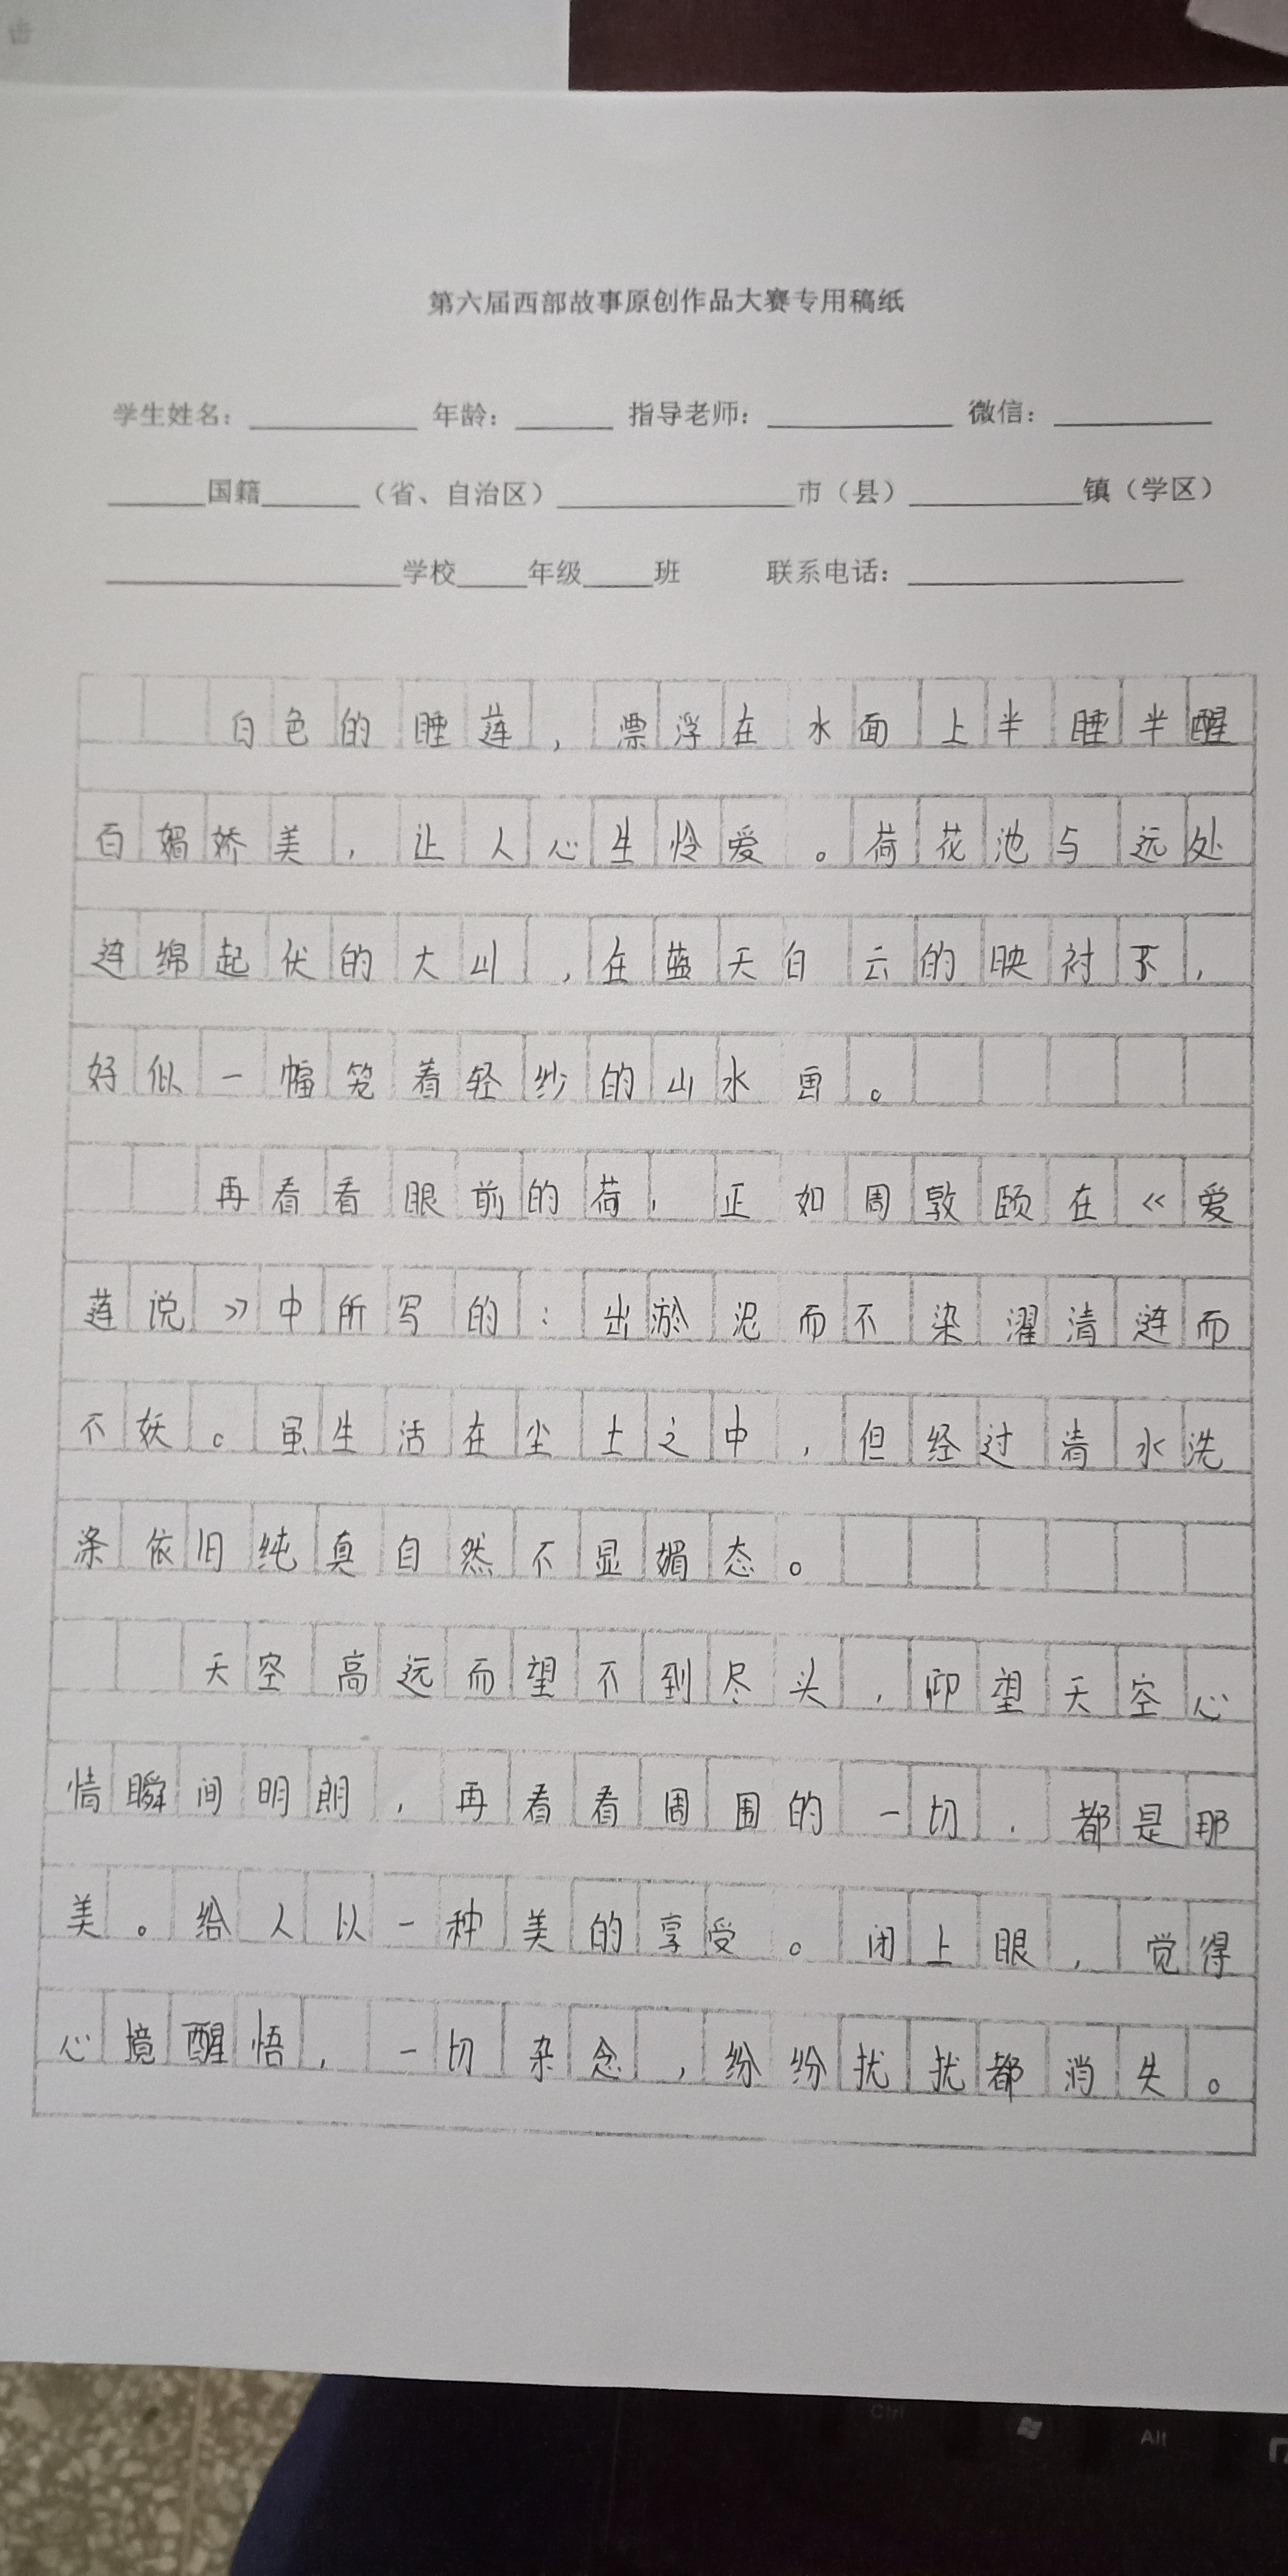 第六届西部故事原创作品大赛专用稿纸
学生姓名：________ 年龄：____ 指导老师：________ 微信：________
____国籍____（省、自治区）________市（县）________镇（学区）
________学校____年级____班 联系电话：________
白色的睡莲，漂浮在水面上半睡半醒
百媚娇美，让人心生怜爱。荷花池与远处
连绵起伏的大山，在蓝天白云的映衬下，
好似一幅笼着轻纱的山水画。
再看看眼前的荷，正如周敦颐在《爱
莲说》中所写的：出淤泥而不染濯清涟而
不妖。虽生活在尘土之中，但经过清水洗
涤依旧纯真自然不显媚态。
天空高远而望不到尽头，仰望天空心
情瞬间明朗，再看看周围的一切，都是那
美。给人以一种美的享受。闭上眼，觉得
心境醒悟，一切杂念，纷纷扰扰都消失。
Ctrl
Alt